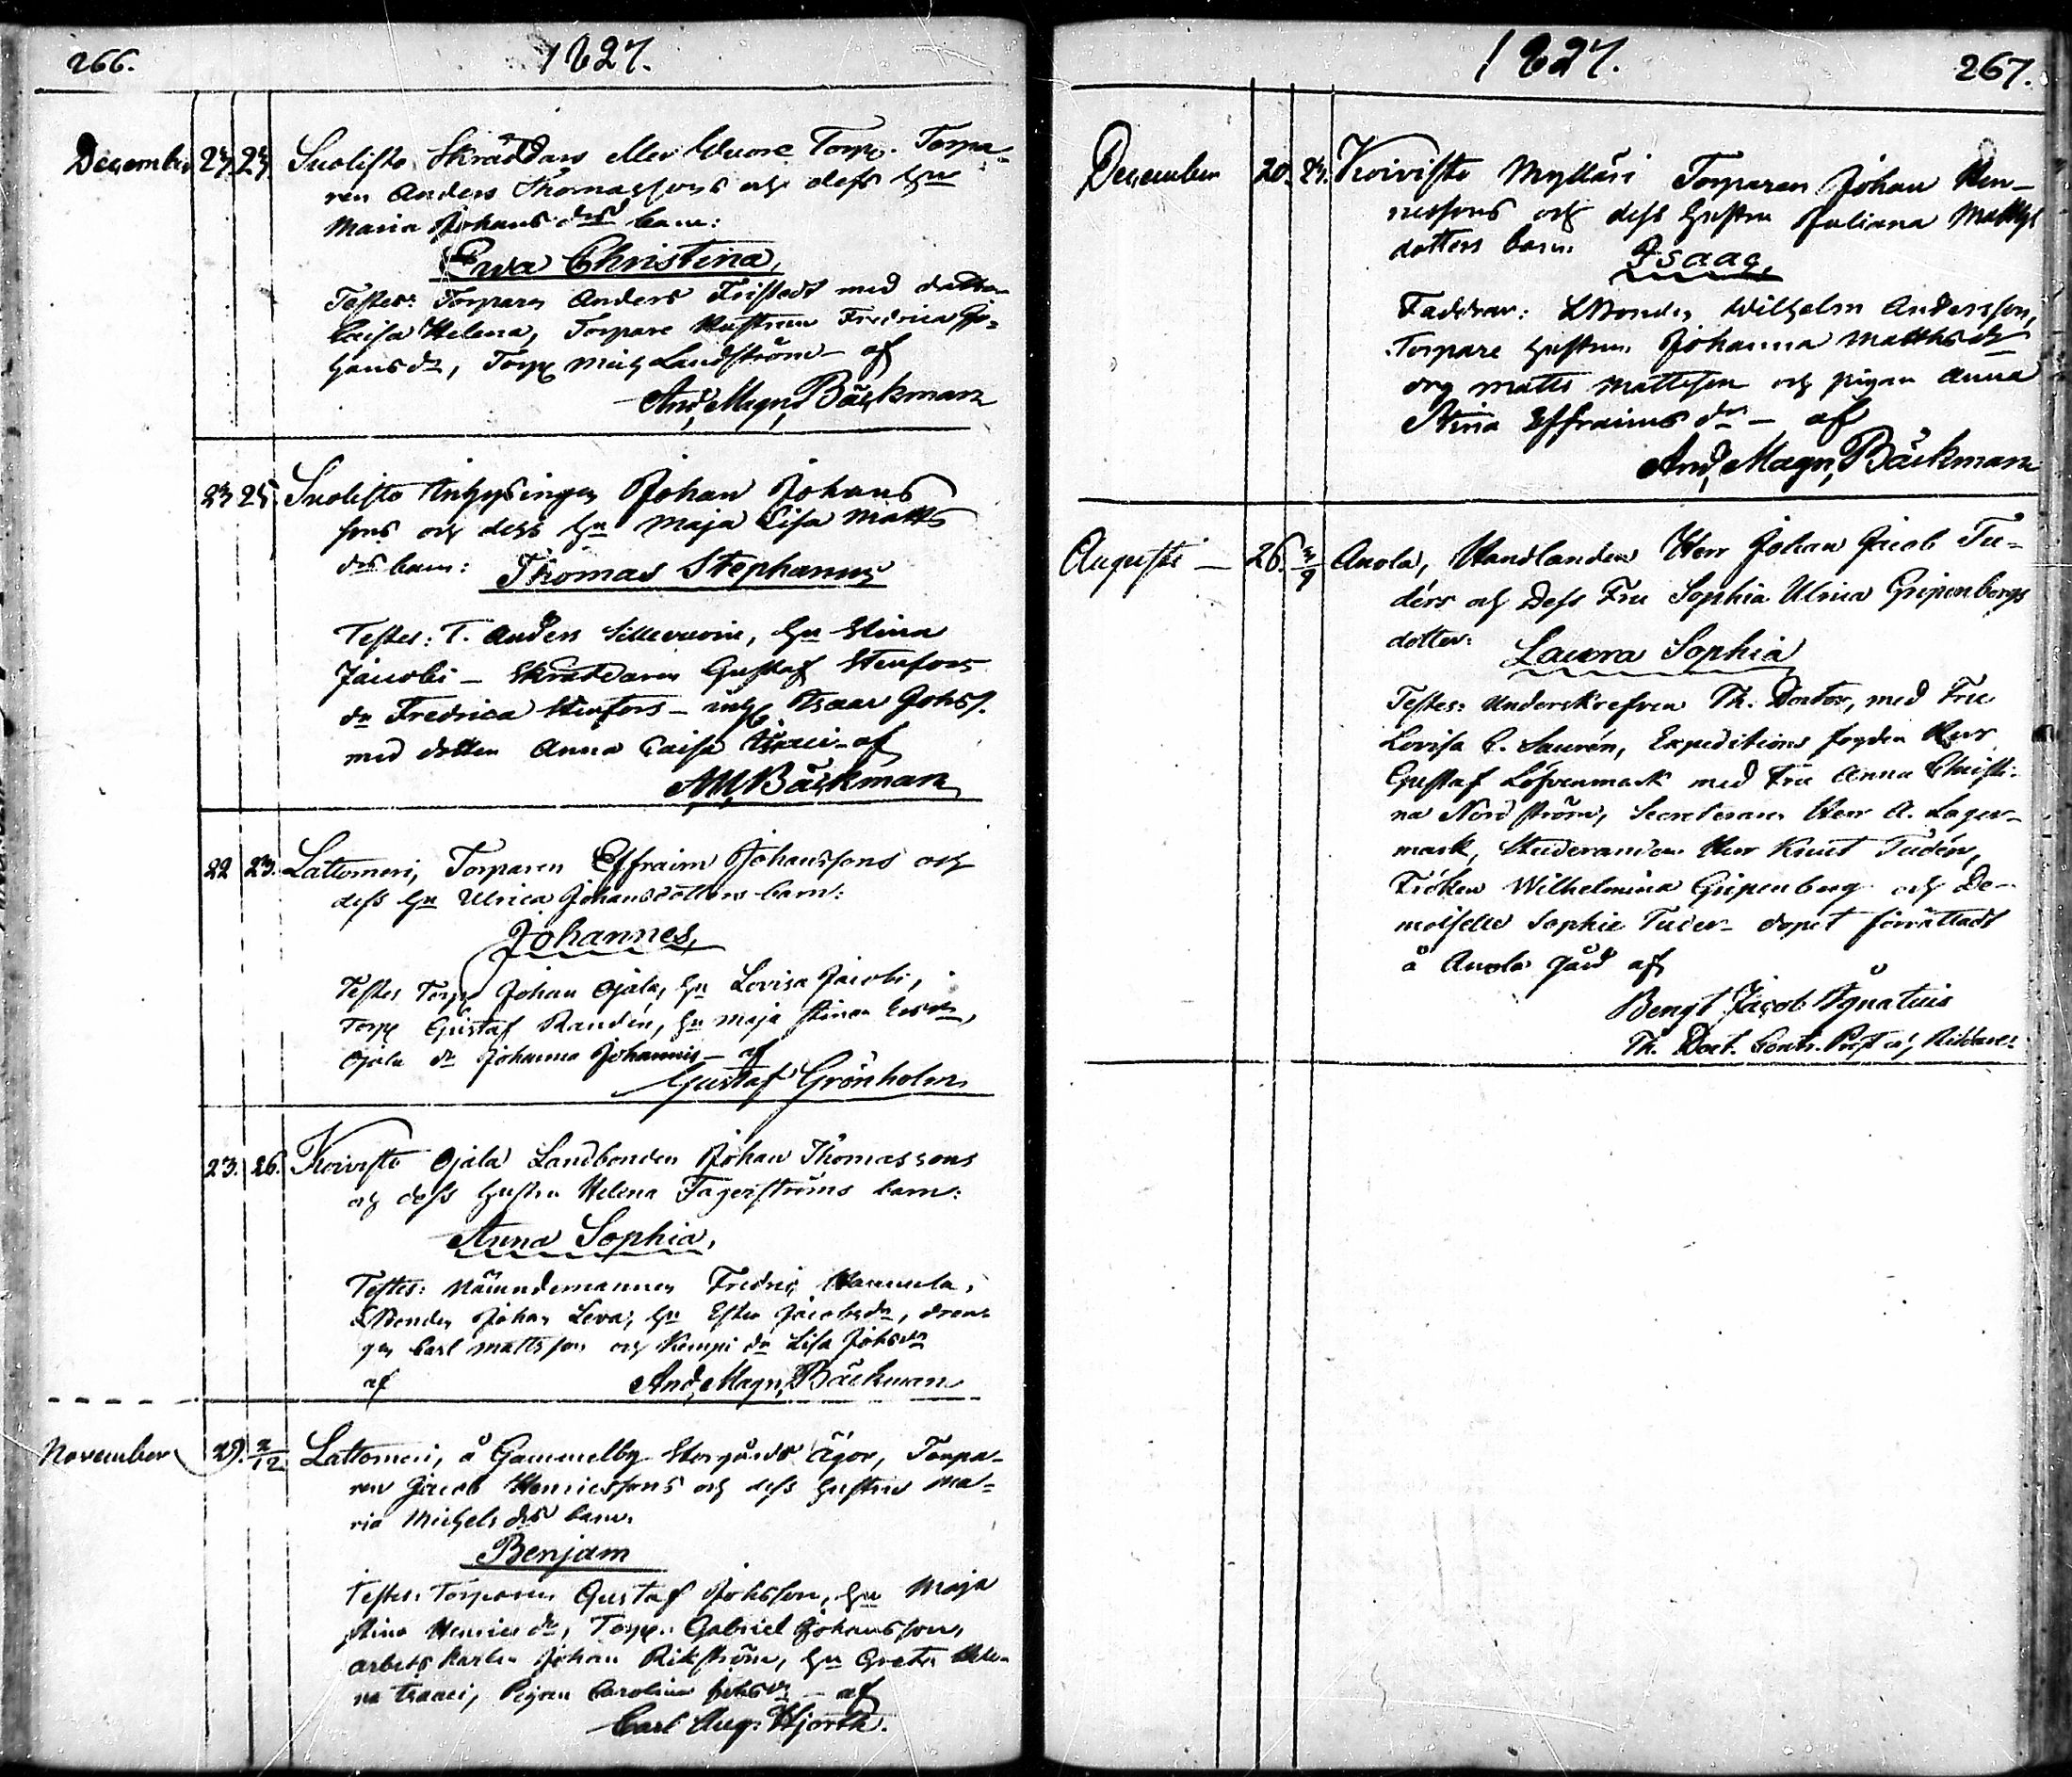 266.
1827.
December 23 23 Suolisto Skräddars eller Torp. Torpa-
ren Anders Thomassons och dess hu
Maria Johans drs barn:
Ewa Christina,
Testes: Torparen Anders Fristedt med dottren
Caisa Helena, Torpare Hustrun Fredrica Jo-
hansdr, Torp Mich Landström – af
And. Magn. Bäckman
23 25. Suolisto Inhysingen Johan Johans
sons och dess hu Maja Lisa Matts
drs barn: Thomas Stephanus
Testes: T. Anders, hu Stina
Jacobi – Skräddaren Gustaf Stenfors
dr Fredrica Stenfors – inh Isaac Johs.
med dottren Anna Caisa Isaci – af
A M Bäckman
22 23. Lattomeri, Torparen Effraim Johanssons och
dess hu Ulrica Johansdotters barn:
Johannes,
Testes Torp Johan Ojala, hu Lovisa Jacobi,
Torp Gustaf Randén, hu Maja Stina
Ojala dr Johanna Johannis – af
Gustaf Grönholm
23. 26. Koivisto Ojala Landbonden Johan Thomassons
och dess hustru Helena Fagerströms barn:
Anna Sophia,
Testes: Nämndemannen Fredric Hannula,
LBonden Johan Leva, hu Ester Jacobsdr, dren-
gen Carl Mattsson och Kempi dr Lisa Johsdr
af And. Magn. Bäckman
November 29. 2/12 Lattomeri, å Gammelby Storgårds ägor, Torpa-
ren Jacob Henricssons och dess hustru Ma-
ria Michels drs barn.
Benjam
Testes: Torparen Gustaf Johsson, hu Maja
Stina Henrics dr, Torp. Gabriel Johansson,
arbets karlen Johan Rikström, hu Greta Hele-
na Isaaci, Pigan Carolina Johsdr – af
Carl Aug. Hjorth.
1827.
267.
December 20. 23. Koivisto Mylläri Torparen Johan Hen-
ricssons och dess hustru Juliana Matths
dotters barn: Isaac,
Faddrar: LBonden Wilhelm Andersson,
Torpare hustrun Johanna Matthsdr
drg Matts Mattsson och pigan Anna
Stina Effraims dr – af
And. Magn. Bäckman
Augusti – 26. 3/9 Anola, Handlanden Herr Johan Jacob Tu-
dérs och Dess Fru Sophia Ulrica Gripenbergs
dotter: Laura Sophia
Testes: Underskrefven Th. Doctor, med Fru
Lovisa C. Saurén, Expeditions fogden Herr
Gustaf Löfvenmark med Fru Anna Christi-
na Nordström, Secreteraren Herr A. Lager-
mark, Studeranden Herr Knut Tudér,
Fröken Wilhelmina Gripenberg och De-
moiselle Sophie Tudér – dopet förrättadt
å Anola gård af
Bengt Jacob Ignatius
Th. Doct. Contr. Prost och Riddare.